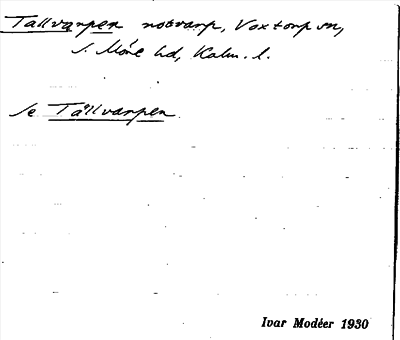 Tallvarpen notvarp, Voxtorp sn,
S. Möre hd, Kalm. l.
Se Tållvarpen.
Ivar Modéer 1930